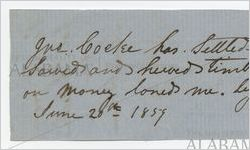 Jno. Cocke has. Settled
Sawed and hewed timb
on money loned me. by
June 20th 1859
ALABAMA